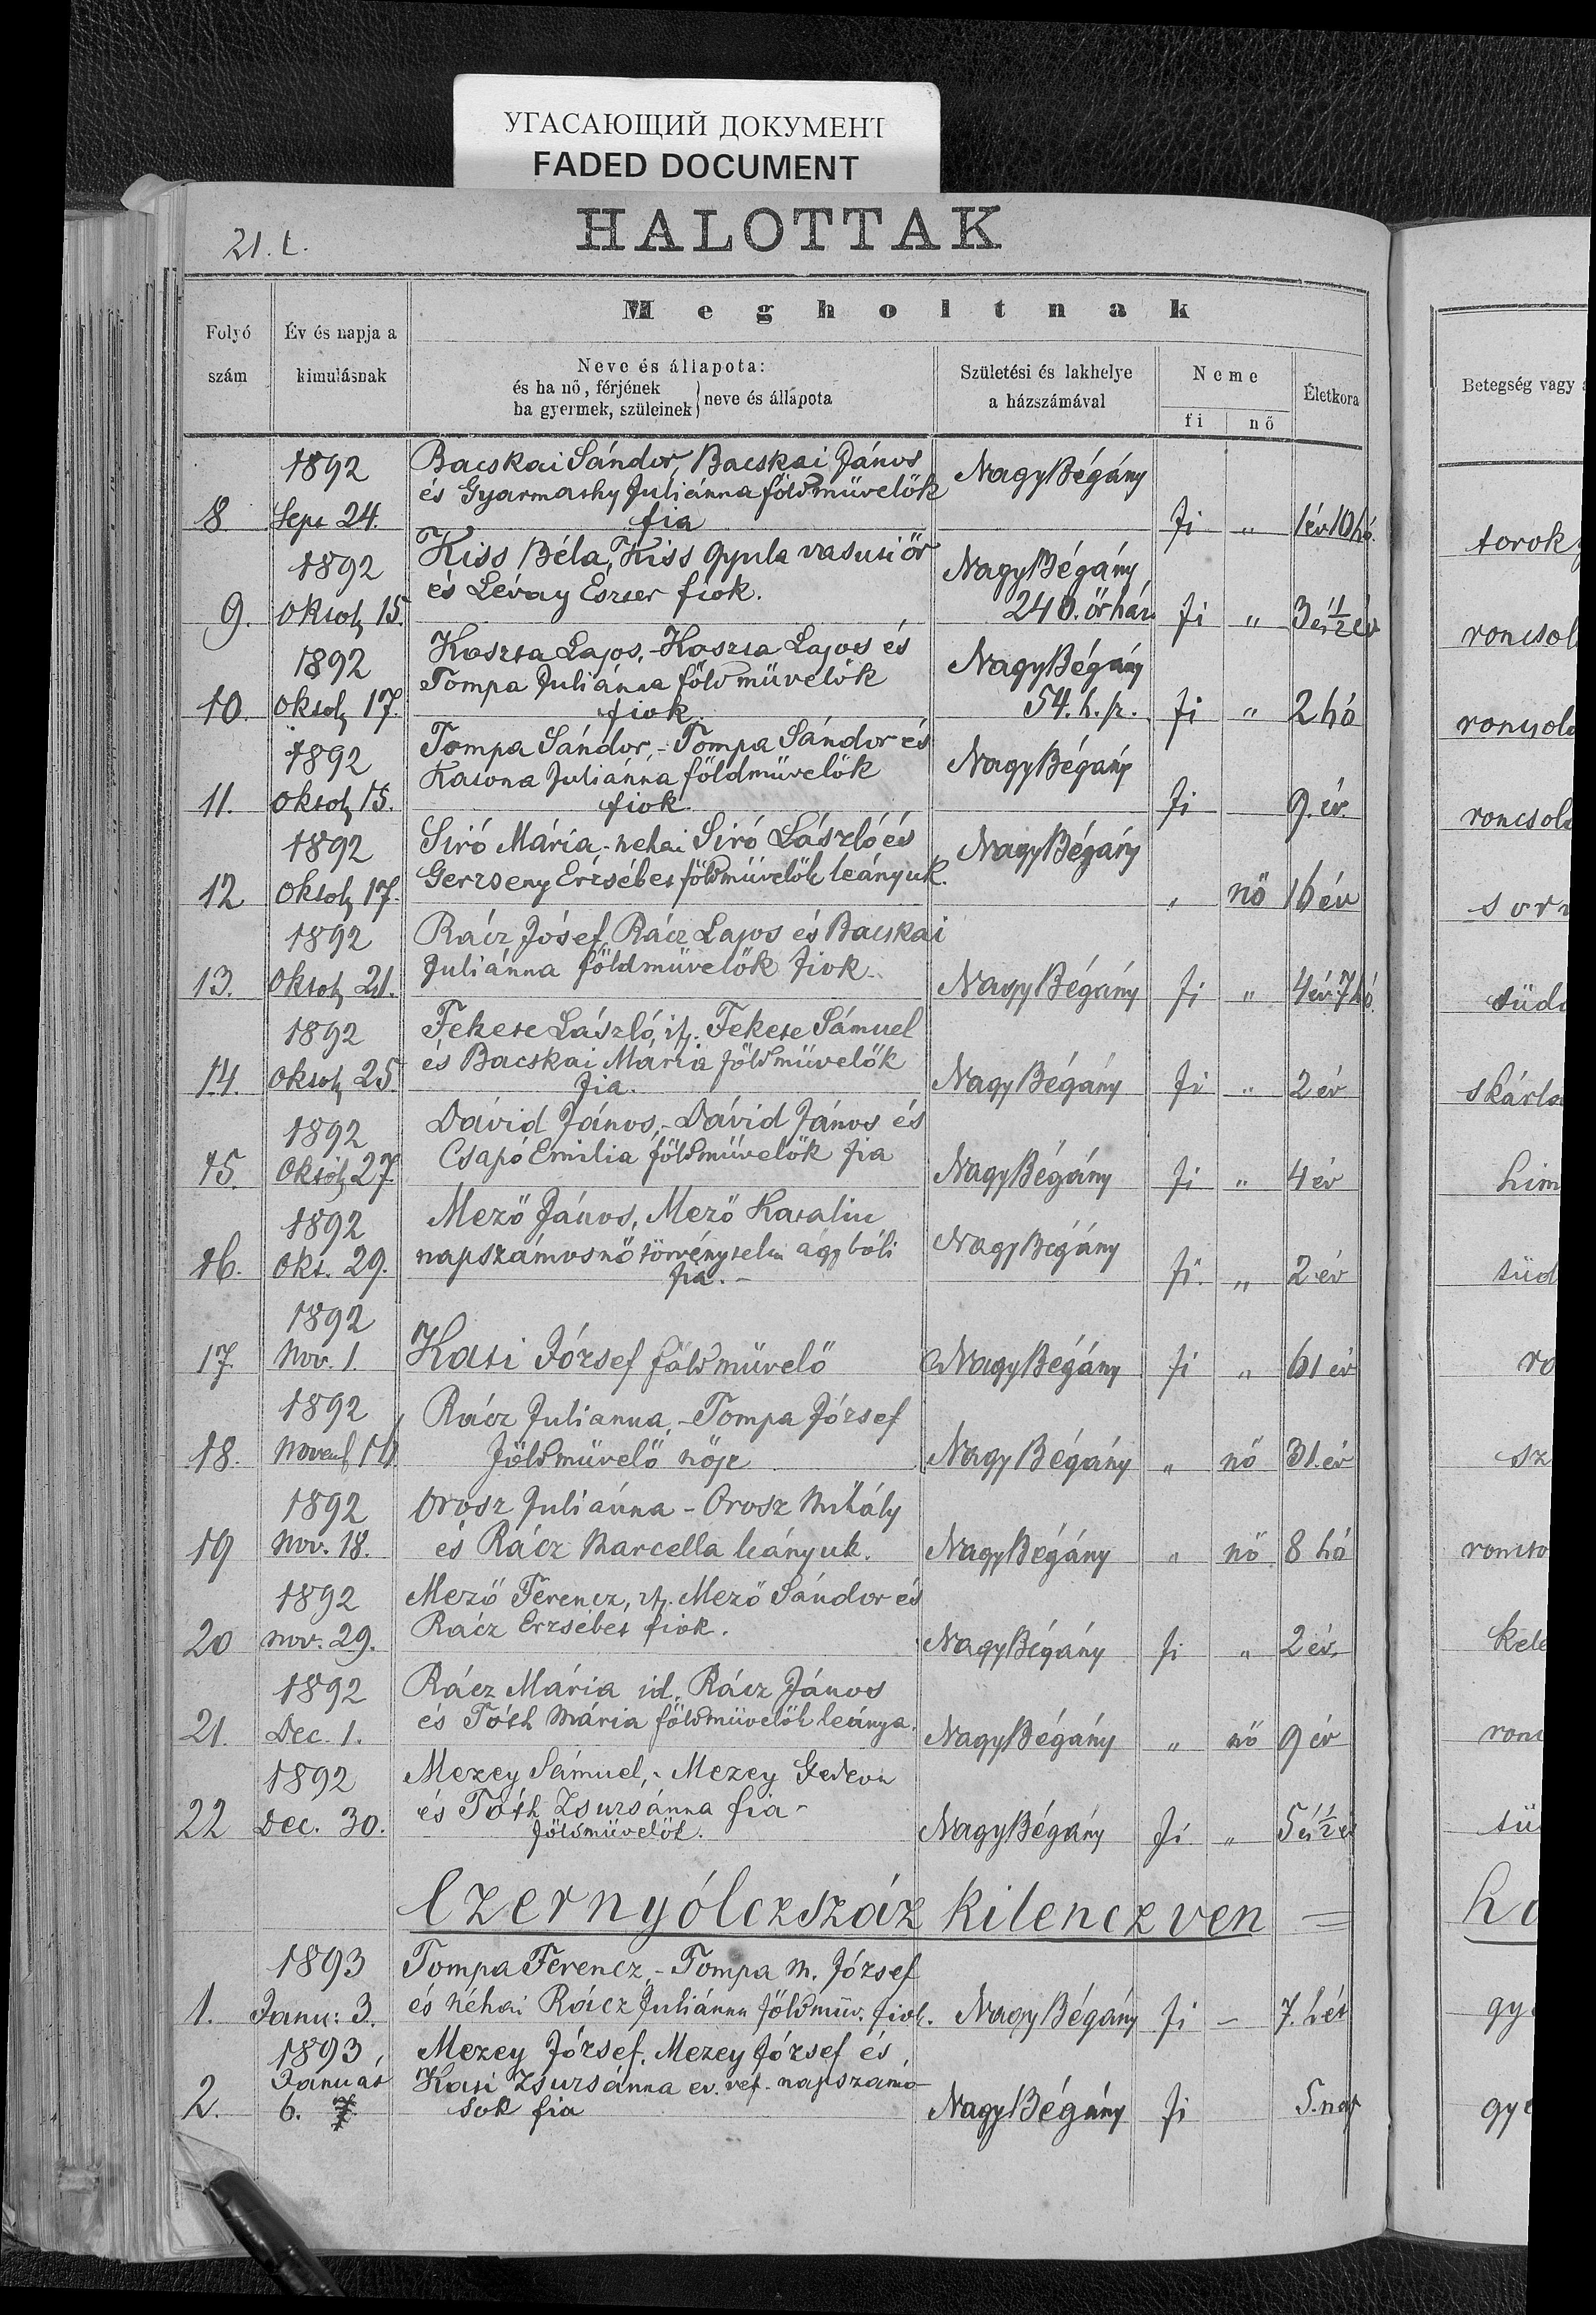 УГАСАЮЩИЙ ДОКУМЕНТ
FADED DOCUMENT
21. t.
HALOTTAK
Megholtnak
Folyó szám
Év és napja a kimulásnak
Neve és állapota:
és ha nő, férjének
ha gyermek, szüleinek } neve és állapota
Születési és lakhelye
a házszámával
Neme
fi nő
Életkora
Betegség vagy
1892 Bacskai Sándor, Bacskai János Nagy Bégány
és Gyarmathy Juliánna földmüvelők
8. Sept 24. fia fi „ 1 év 10 hó. torok
1892 Kiss Béla, Kiss Gyula vasuti őr Nagy Bégány
9. Oktob 15. és Lévay Eszter fiok. 240. őrház fi „ 3 és 1/2 év roncsol
1892 Koszta Lajos, - Koszta Lajos és Nagy Bégány
Tompa Juliánna földmüvelők
10. Oktob 17. fiok. 54. h. sz. fi „ 2 hó ronyol
1892 Tompa Sándor, - Tompa Sándor és Nagy Bégány
Katona Juliánna földmüvelők
11. Oktob 15. fiok. fi 9. év. roncsol
1892 Siró Mária - néhai Siró László és Nagy Bégány
12 Oktob 17. Gerzseny Erzsébet földmüvelők leányuk. „ nő 16 év sor
1892 Rácz Jósef, Rácz Lajos és Bacskai
13. Oktob 21. Juliánna földmüvelők fiok. Nagy Bégány fi „ 4 év 7 hó. tüd
1892 Fekete László, ifj. Fekete Sámuel
és Bacskai Mária földmüvelők
14. Oktob 25. fia. Nagy Bégány fi „ 2 év skárla
1892 Dávid János, - Dávid János és
15. Október 27. Csapó Emilia földmüvelők fia Nagy Bégány fi „ 4 év him
1892 Mező János, Mező Katalin
16. Okt. 29. napszámosnő törvénytelen ágybóli Nagy Bégány
fia. - fi. „ 2 év tüd
1892
17. Nov. 1. Kati József földmüvelő Nagy Bégány fi „ 61 év ro
1892 Rácz Julianna, - Tompa József
18. Novemb 14 földmüvelő nöje Nagy Bégány „ nő 31. év sz
1892 Orosz Juliánna - Orosz Mihály
19 Nov. 18. és Rácz Marcella leányuk. Nagy Bégány „ nő 8 hó roncso
1892 Mező Ferencz, ifj. Mező Sándor és
20 Nov. 29. Rácz Erzsébet fiok. Nagy Bégány fi „ 2 év. kele
1892 Rácz Mária id. Rácz János
21. Dec. 1. és Tóth Mária földmüvelők leánya. Nagy Bégány „ nő 9 év ronc
1892 Mezey Sámuel, - Mezey Gedeon
22 Dec. 30. és Tóth Zsuzsánna fia -
földmüvelők. Nagy Bégány fi. „ 5 és 1/2 év tü
Ezernyólczszáz kilenczven = há
1893 Tompa Ferencz - Tompa M. József
1. Janu: 3. és néhai Rácz Juliánna földmüv. fiok. Nagy Bégány fi - 7. hét gy
1893 Mezey József, Mezey József és
Január Kati Zsuzsánna ev. ref. napszámo-
2. 6. sok fia Nagy Bégány fi 5. nap gye